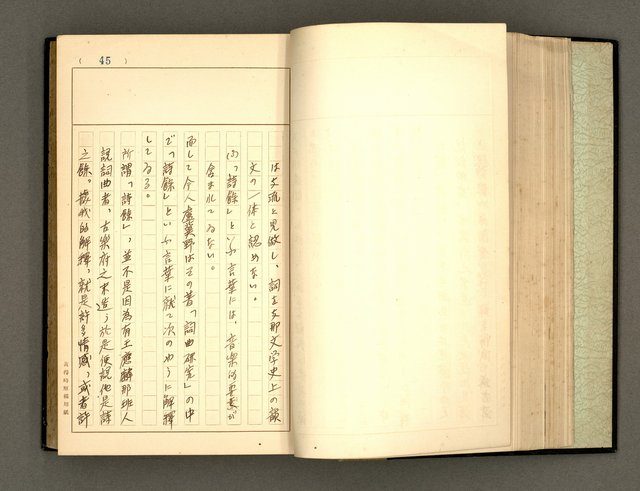 ( 45 )
は支流と見做し、詞を支那文学史上の韻
文の一体と認めない。
(4)「詩餘」といふ言葉には、音楽的要素が
含まれてゐない。
而して今人盧冀野はその著「詞曲研究」の中
で「詩餘」といふ言葉に就て次のやうに解釋
してゐる。
所謂「詩餘」，並不是因為有王應麟那班人
説詞曲者，古樂府之末造，於是便説他是詩
之餘。據我的解釋，就是許多情感，或者許
黃得時原稿用紙